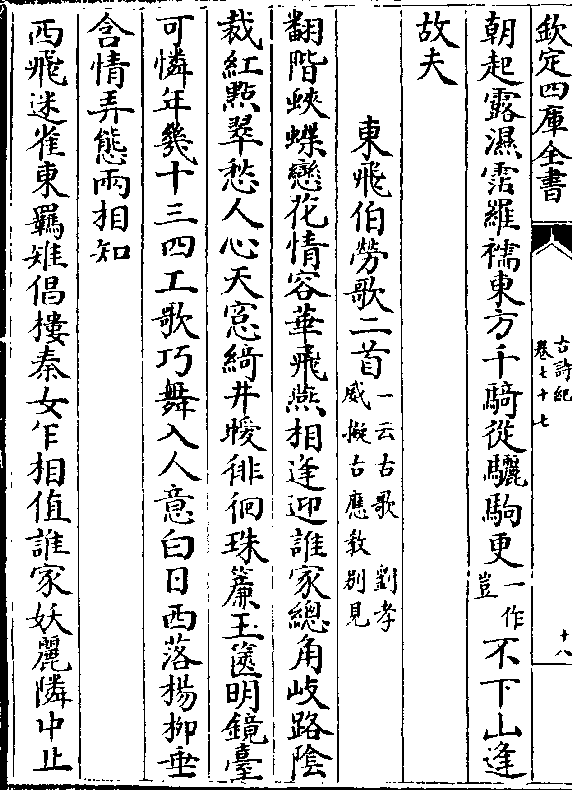 欽定四庫全書
古詩紀
卷七十七
十八
朝起露濕霑羅襦東方千騎從驪駒更一作豈不下山逢
故夫
東飛伯勞歌二首一云古歌 劉孝威擬古應教别見
翻階蛺蝶戀花情容華飛燕相逢迎誰家總角岐路陰
裁紅點翠愁人心天窓綺井曖徘徊珠簾玉篋明鏡臺
可憐年幾十三四工歌巧舞入人意白日西落楊柳垂
含情弄態兩相知
西飛迷雀東羈雉倡樓秦女乍相值誰家妖麗隣中止